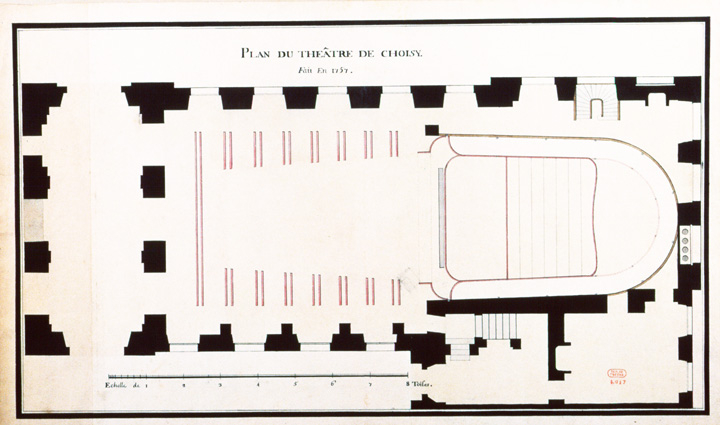 PLAN DU THEÂTRE DE CHOISY.
Fait En 1757.
Echelle de 1 2 3 4 5 6 7 8 Toises.